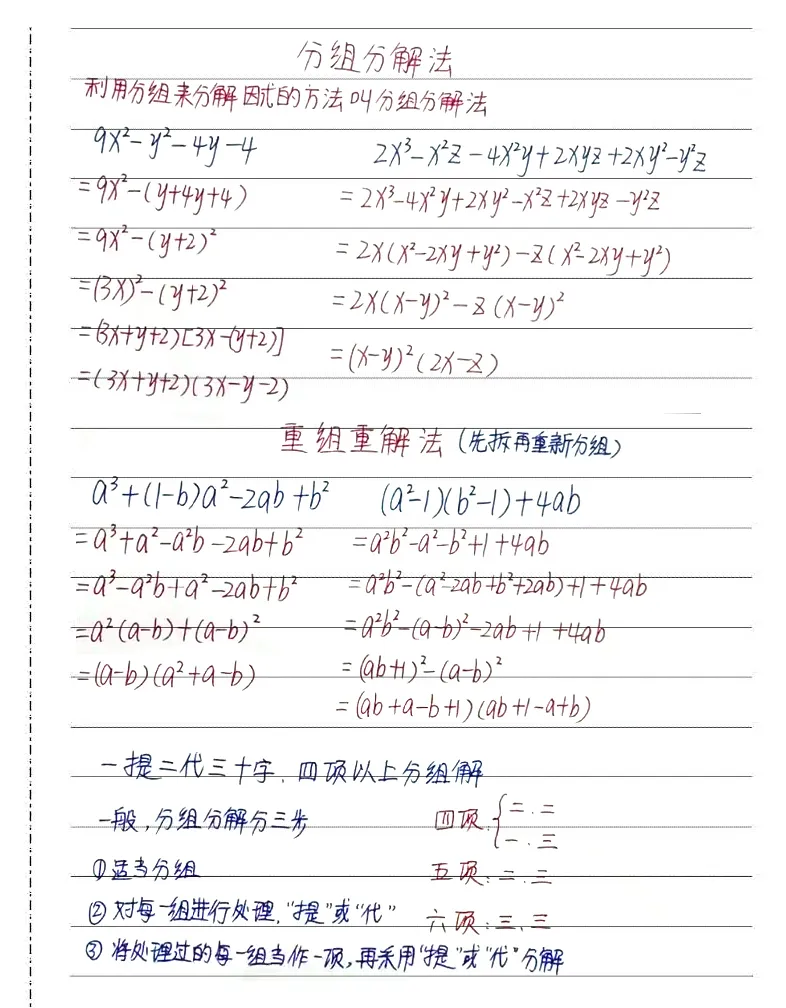 分组分解法
利用分组来分解因式的方法叫分组分解法
9x²-y²-4y-4
=9x²-(y+4y+4)
=9x²-(y+2)²
=(3x)²-(y+2)²
=(3x+y+2)[3x-(y+2)]
=(3x+y+2)(3x-y-2)
2x³-x²z-4x²y+2xyz+2xy²-y²z
=2x³-4x²y+2xy²-x²z+2xyz-y²z
=2x(x²-2xy+y²)-z(x²-2xy+y²)
=2x(x-y)²-z(x-y)²
=(x-y)²(2x-z)
重组重解法(先拆再重新分组)
a³+(1-b)a²-2ab+b²
=a³+a²-a²b-2ab+b²
=a³-a²b+a²-2ab+b²
=a²(a-b)+(a-b)²
=(a-b)(a²+a-b)
(a²-1)(b²-1)+4ab
=a²b²-a²-b²+1+4ab
=a²b²-(a²-2ab+b²+2ab)+1+4ab
=a²b²-(a-b)²-2ab+1+4ab
=(ab+1)²-(a-b)²
=(ab+a-b+1)(ab+1-a+b)
一提二代三十字.四项以上分组解
一般,分组分解分三步
①适当分组
②对每一组进行处理,“提”或“代”
③将处理过的每一组当作一项,再采用“提”或“代”分解
四项:{二.二
一.三
五项:二.三
六项:三、三